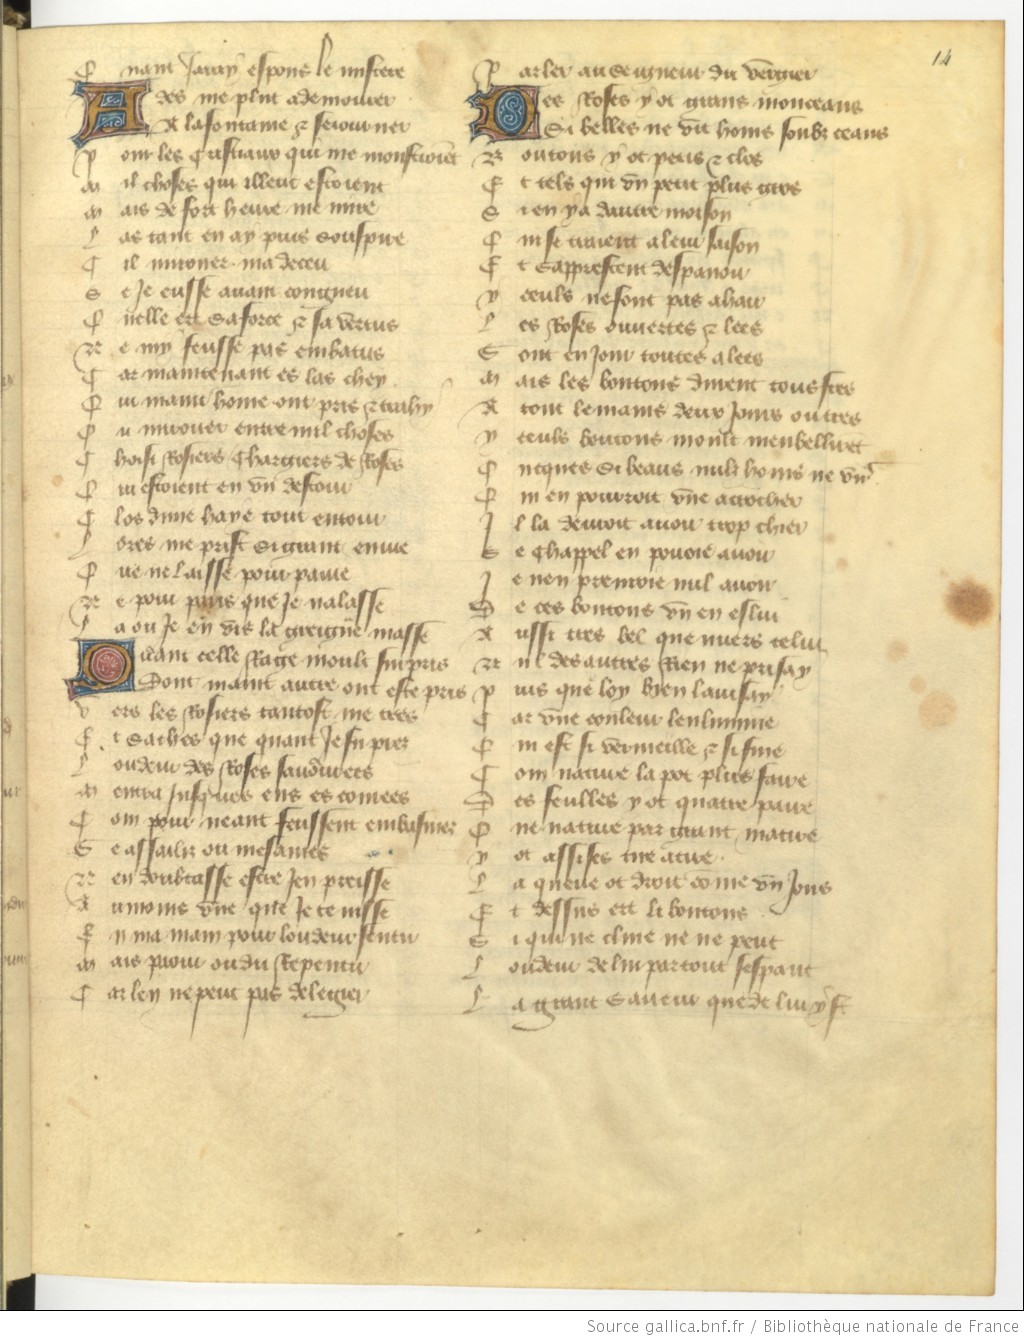 14
Quant jauray espons le mistere
Ades me plut a demourer
A la fontaine & seiourner
Pour les cristaux qui me monstroient
Mil choses qui illeuc estoient
Mais de fort heure me mire
Las tant en ay puis souspire
Cil mirouer ma deceu
Se je eusse avant congneu
Quelle ert sa force & sa vertus
Ne my feusse pas embatus
Car maintenant es las chey
Qui maint home ont pris & trahy
Ou mirouer entre mil choses
Choisi Rosiers chargiers de Roses
Qui estoient en un destour
Clos dune haye tout entour
Lores me prist si grant envie
Que ne laisse pour pavie
Ne pour paris que je nalasse
La ou je en vis la greigne masse
Quant celle Rage moult surpris
Dont maint autre ont este pris
Vers les Rosiers tantost me tres
Et saches que quant je fu pres
Loudeur des Roses savourees
Mentra jusques ens es cornees
Com pour neant feussent embasmer
Se assailir ou mesames
Nen doubtasse estre jen preisse
Aumoins une que je tenisse
En ma main pour loudeur sentir
Mais paour ou du Repentir
Car len ne peut pas de legier
Parler au seigneur du vergier
Des Roses y ot grans monceaus
Si belles ne vit homs soubz ceaus
Boutons y ot petis & clos
Et tels qui un petit plus gros
Sien y a dautre moison
Qui se traient a leur saison
Et sapprestent despanoir
Yceuls ne font pas a hair
Les Roses ouvertes & lees
Sont en jour toutes alees
Mais les boutons durent tous fres
A tout le mains deux jours ou tres
Yceuls boutons moult menbellirent
Oncques si beaus nulz homs ne vit
Qui en pourroit une acrocher
Il la devroit avoir trop chier
Se chappel en povoie avoir
Je nen prenroie nul avoir
De ces boutons un en eslui
Aussi tres bel que nuers celui
Nul des autres Rien ne prisay
Puis que loy bien lavisay
Car une couleur lenlumine
Qui est si vermeille & si fine
Com nature la pot plus faire
Des feulles y ot quatre paire
Que nature par grant mature
Y ot assises tire a tire
La queue ot droit come un jons
Et dessus ert li boutons
Si qui ne cline ne ne pent
Loudeur de lui partout sespant
La grant saveur que de lui yst
Source gallica.bnf.fr / Bibliothèque nationale de France